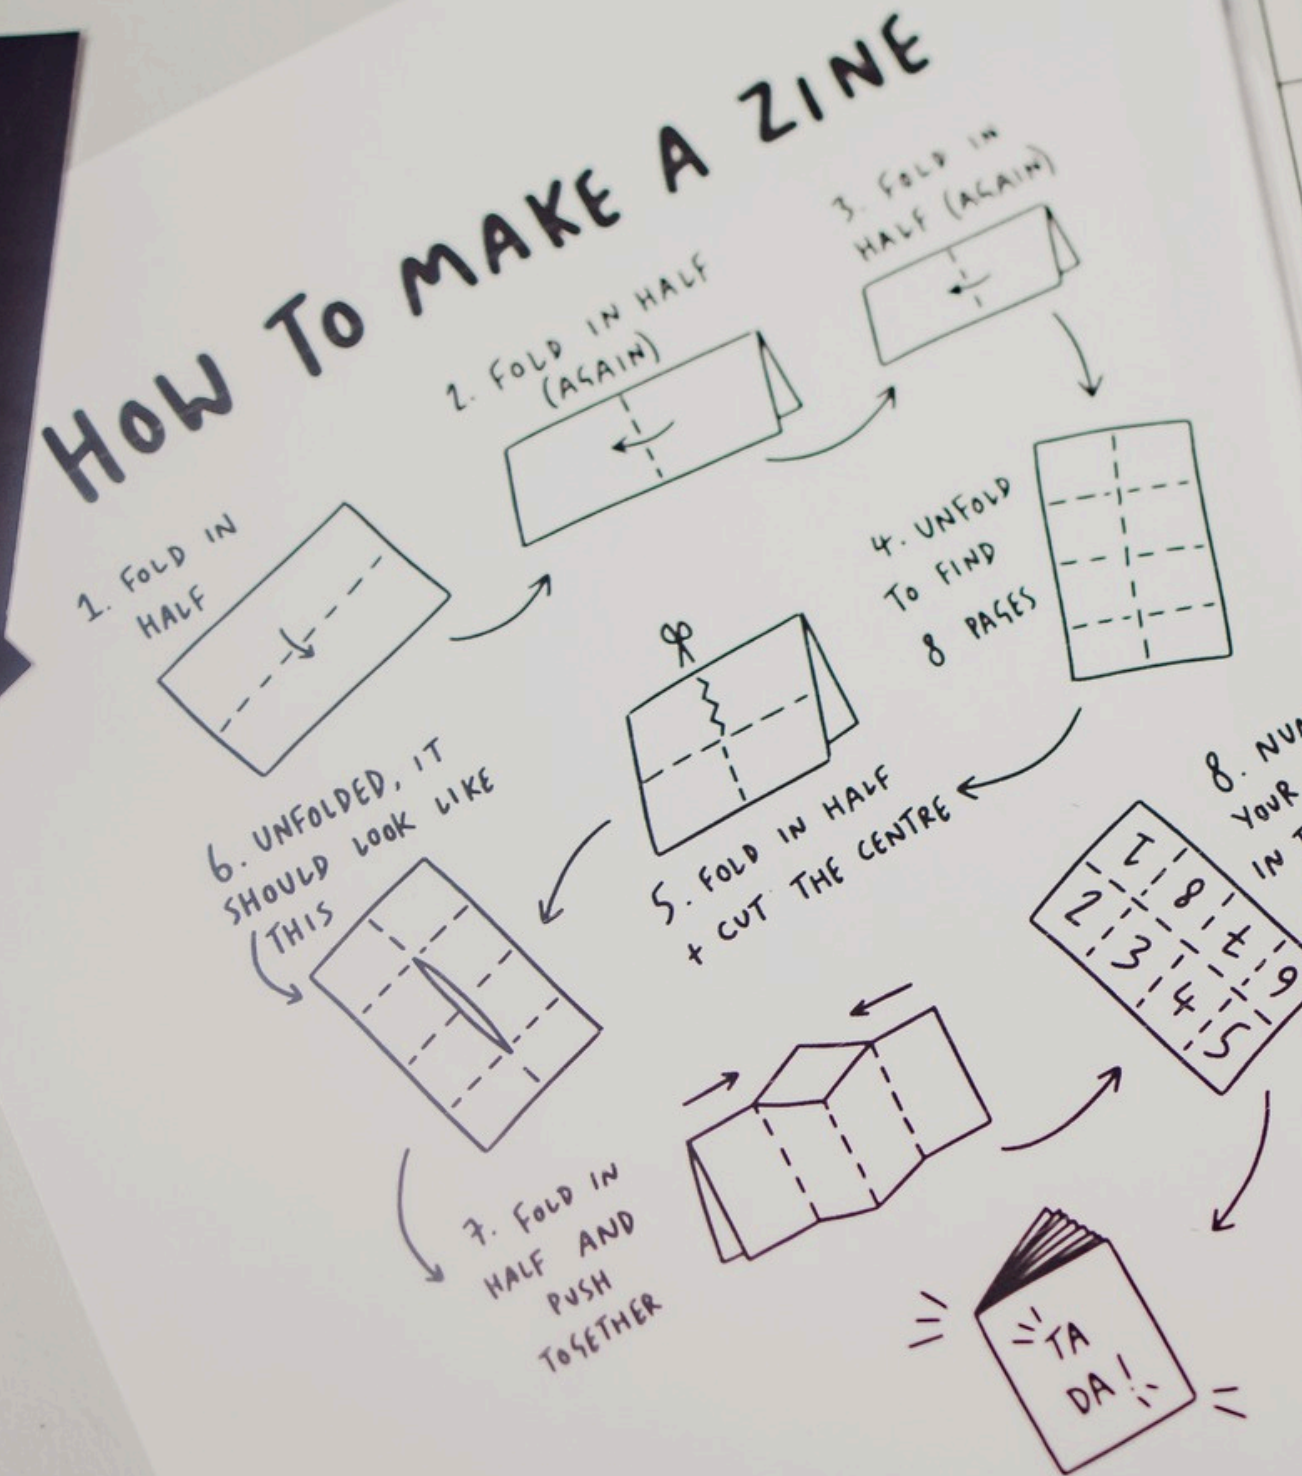 HOW TO MAKE A ZINE
1. FOLD IN
HALF
2. FOLD IN HALF
(AGAIN)
3. FOLD IN
HALF (AGAIN)
4. UNFOLD
TO FIND
8 PAGES
5. FOLD IN HALF
+ CUT THE CENTRE
6. UNFOLDED, IT
SHOULD LOOK LIKE
THIS
7. FOLD IN
HALF AND
PUSH
TOGETHER
8.
YOUR
IN
1 8 7 6
2 3 4 5
TA
DA!